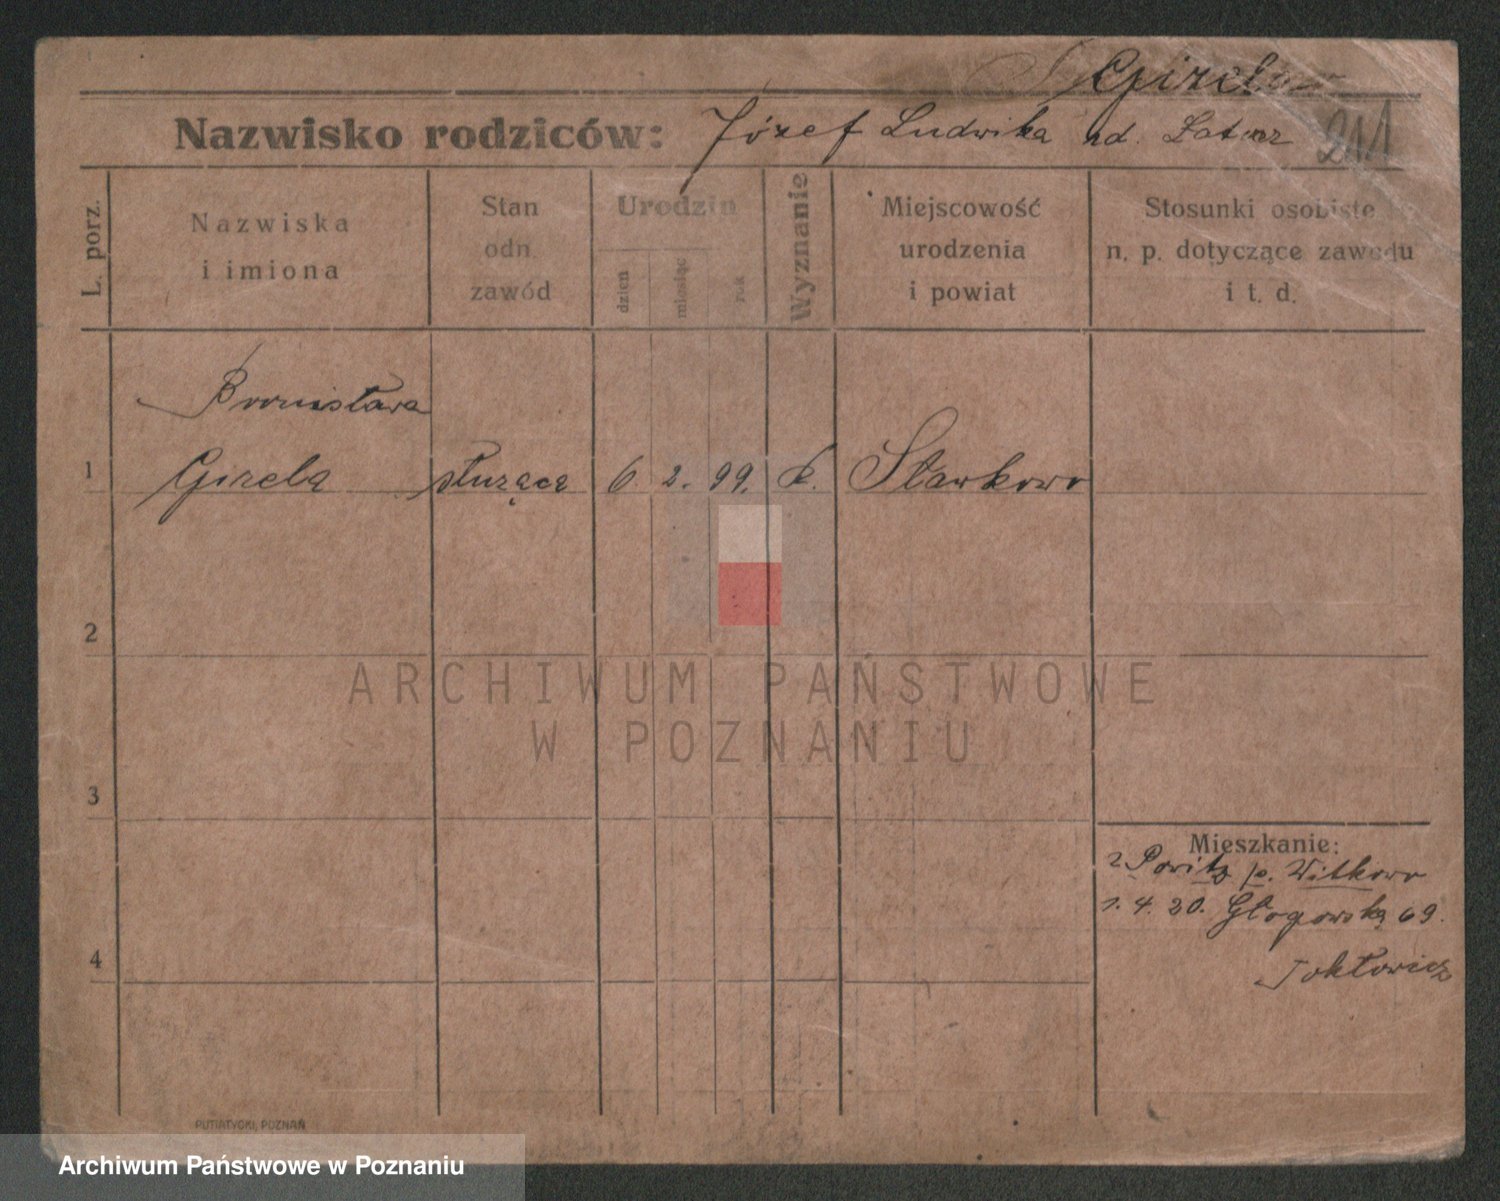 Gizela
Nazwisko rodziców: Józef Ludwika ud. Latosz 211
L. porz.
Nazwiska
i imiona
Stan
odn.
zawód
Urodzin
dzień
miesiąc
rok
Wyznanie
Miejscowość
urodzenia
i powiat
Stosunki osobiste
n. p. dotyczące zawodu
i t. d.
Bronisława
1 Gizela służąca 6 2. 99. k. Sławkowo
2
3
4
Mieszkanie:
z Powitz p. Witkowo
1. 4. 20. Głogowska 69.
PUTIATYCKI, POZNAŃ
ARCHIWUM PAŃSTWOWE
W POZNANIU
Archiwum Państwowe w Poznaniu